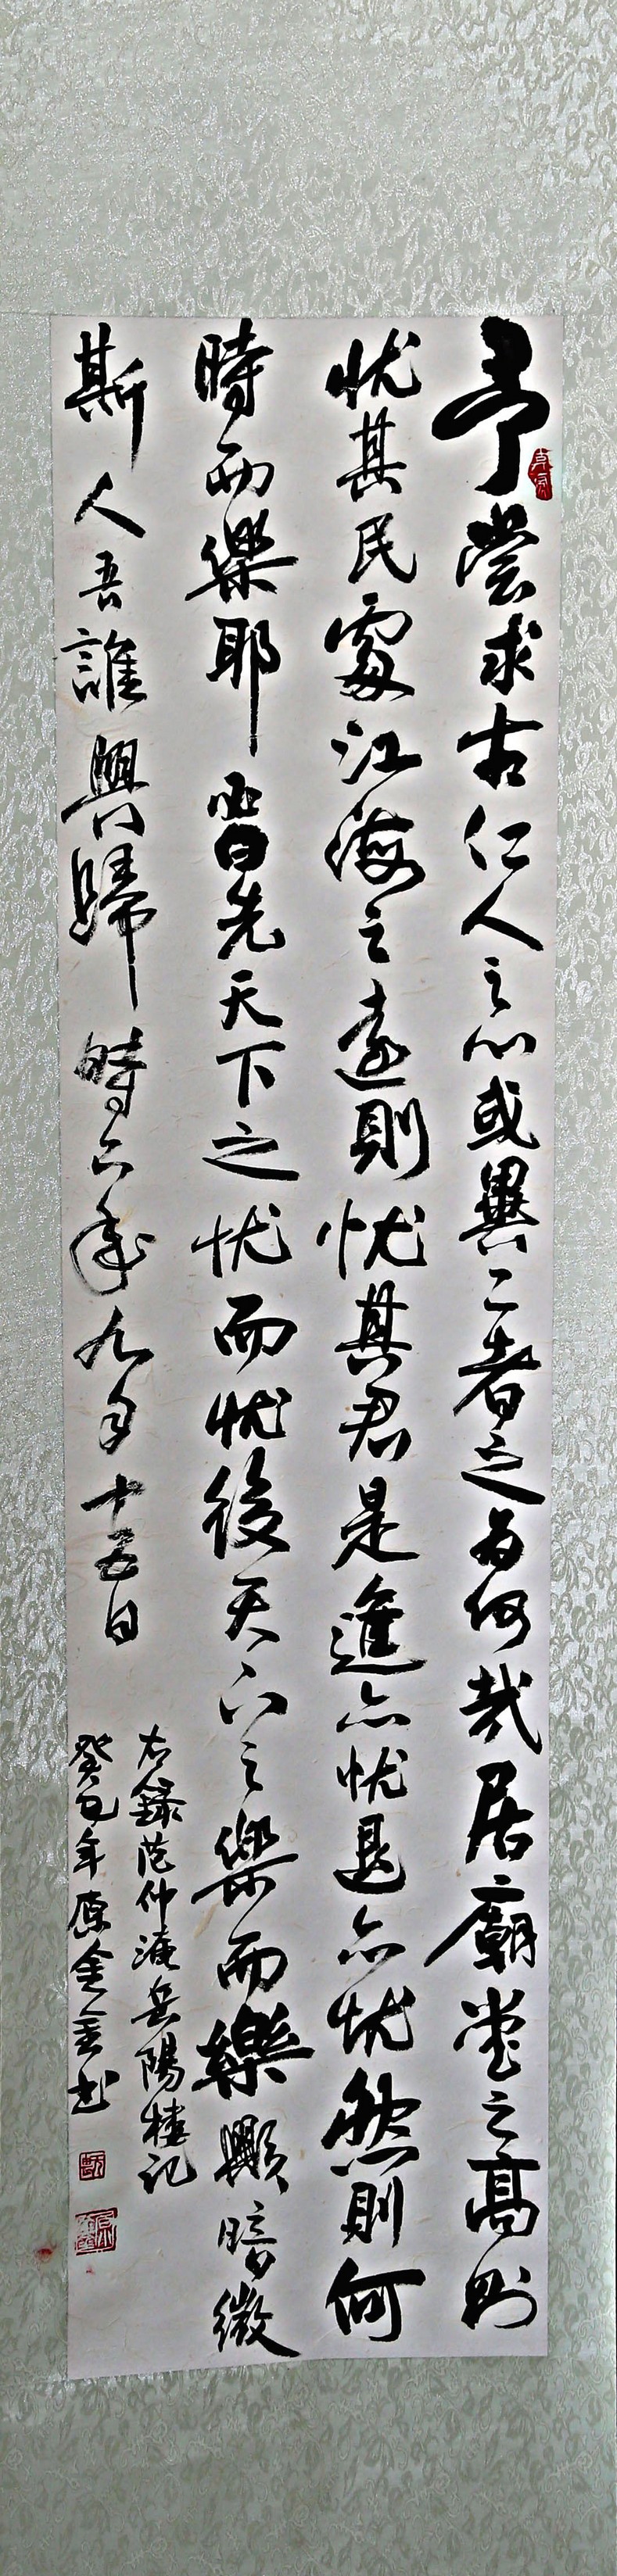 予嘗求古仁人之心或異二者之為何哉居廟堂之高則
忧其民處江海之遠則忧其君是進亦忧退亦忧然則何
時而樂耶必曰先天下之忧而忧後天下之樂而樂歟噫微
斯人吾誰與歸時六年九月十五日
右錄范仲淹岳陽樓記
癸巳年原金书